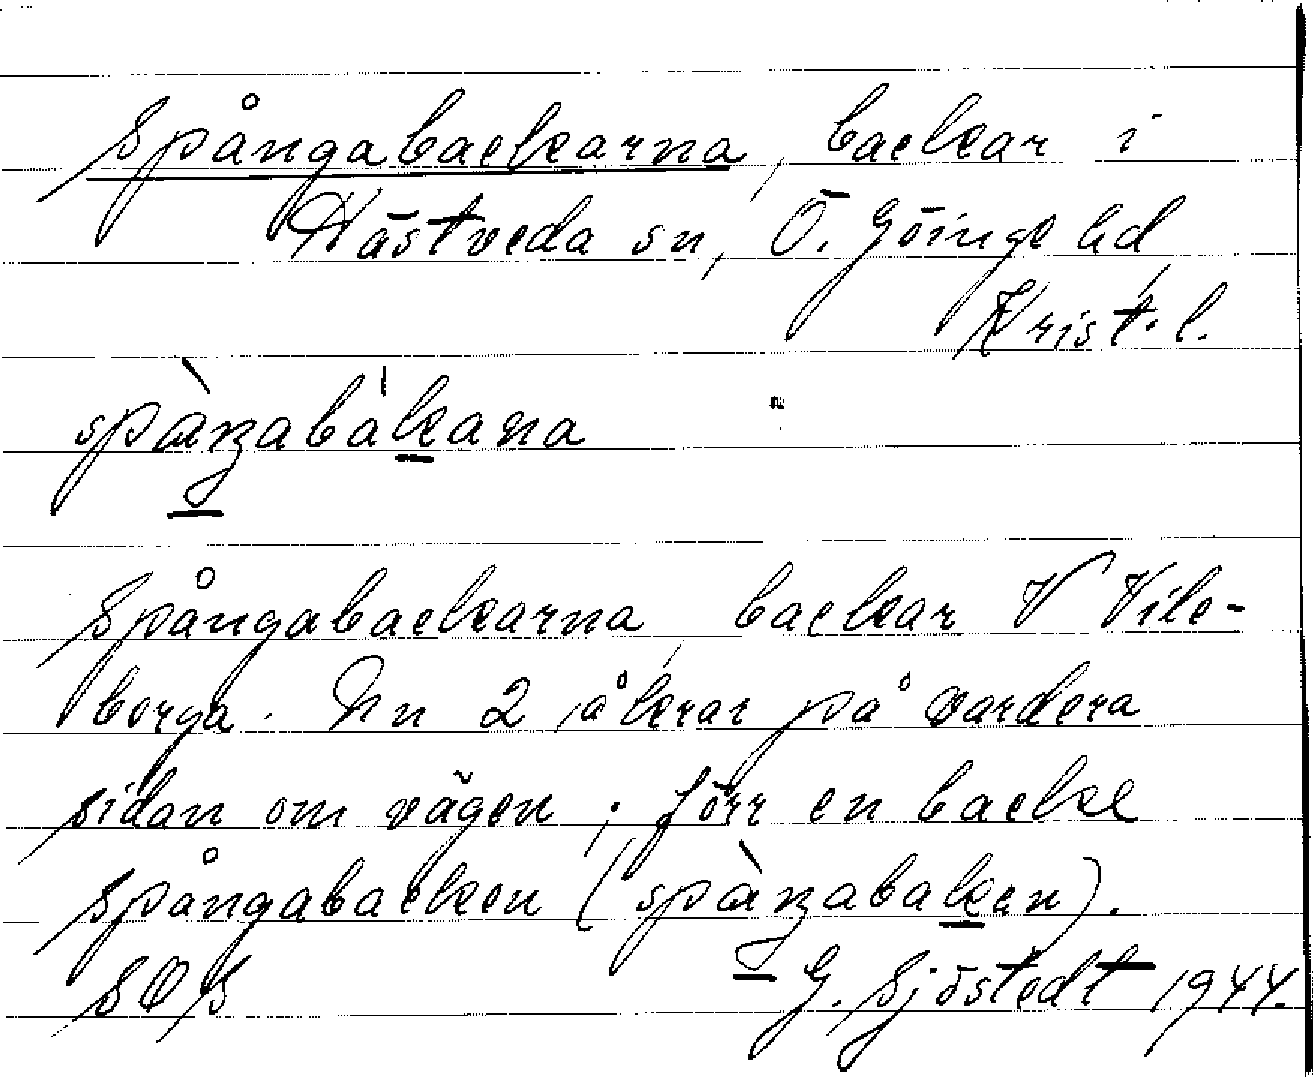 Spångabackarna, backar i
Hästveda sn, Ö. Göinge hd,
Krist. l.
Spångabackarna, backar V Vile-
borga. Nu 2 åkrar på vardera
sidan om vägen; förr en backe
Spångabacken
G. Sjöstedt 1944.